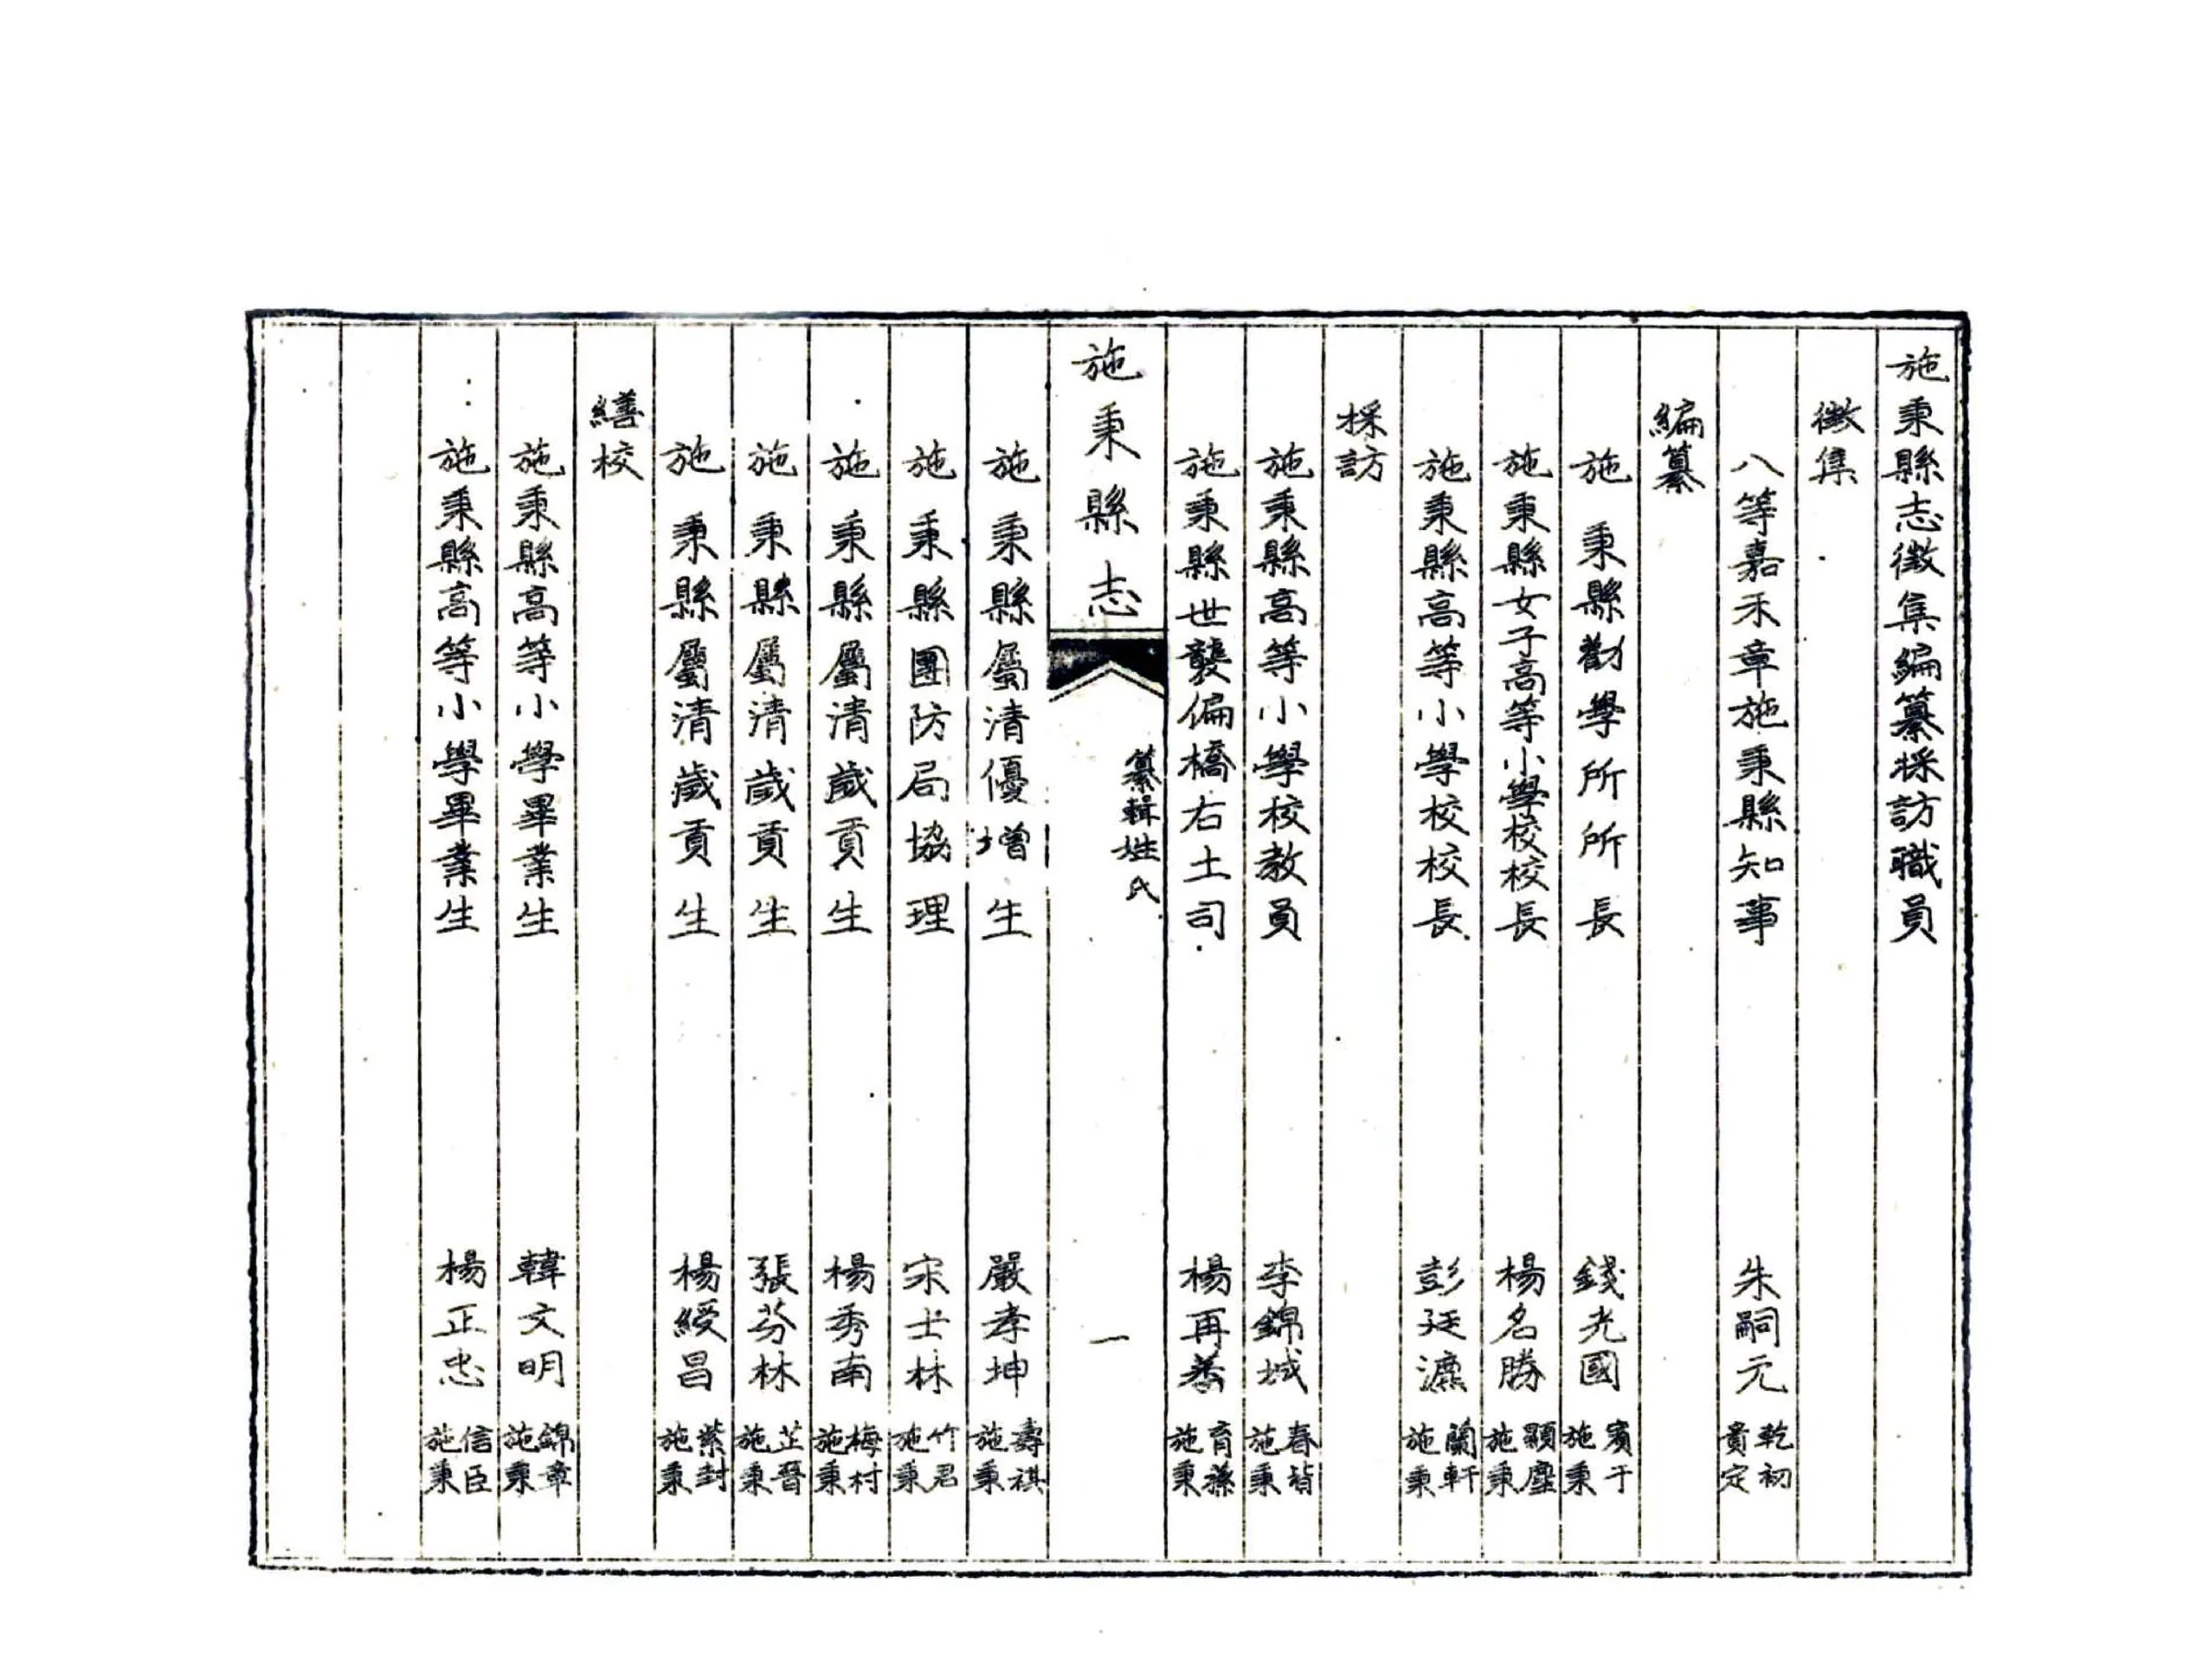 施秉縣志徵集編纂採訪職員
徵集
八等嘉禾章施秉縣知事 朱嗣元 乾初 貴定
編纂
施秉縣勸學所所長 錢光國 賓于 施秉
施秉縣女子高等小學校校長 楊名勝 顯塵 施秉
施秉縣高等小學校校長 彭廷瀌 蘭軒 施秉
採訪
施秉縣高等小學校教員 李錦城 春皆 施秉
施秉縣世襲偏橋右土司 楊再 育蓀 施秉
施秉縣志 纂輯姓氏 一
施秉縣屬清優增生 嚴孝坤 壽祺 施秉
施秉縣團防局協理 宋士林 竹君 施秉
施秉縣屬清歲貢生 楊秀南 梅村 施秉
施秉縣屬清歲貢生 張芬林 芷晉 施秉
施秉縣屬清歲貢生 楊綬昌 紫封 施秉
繕校
施秉縣高等小學畢業生 韓文明 錦章 施秉
施秉縣高等小學畢業生 楊正忠 信臣 施秉